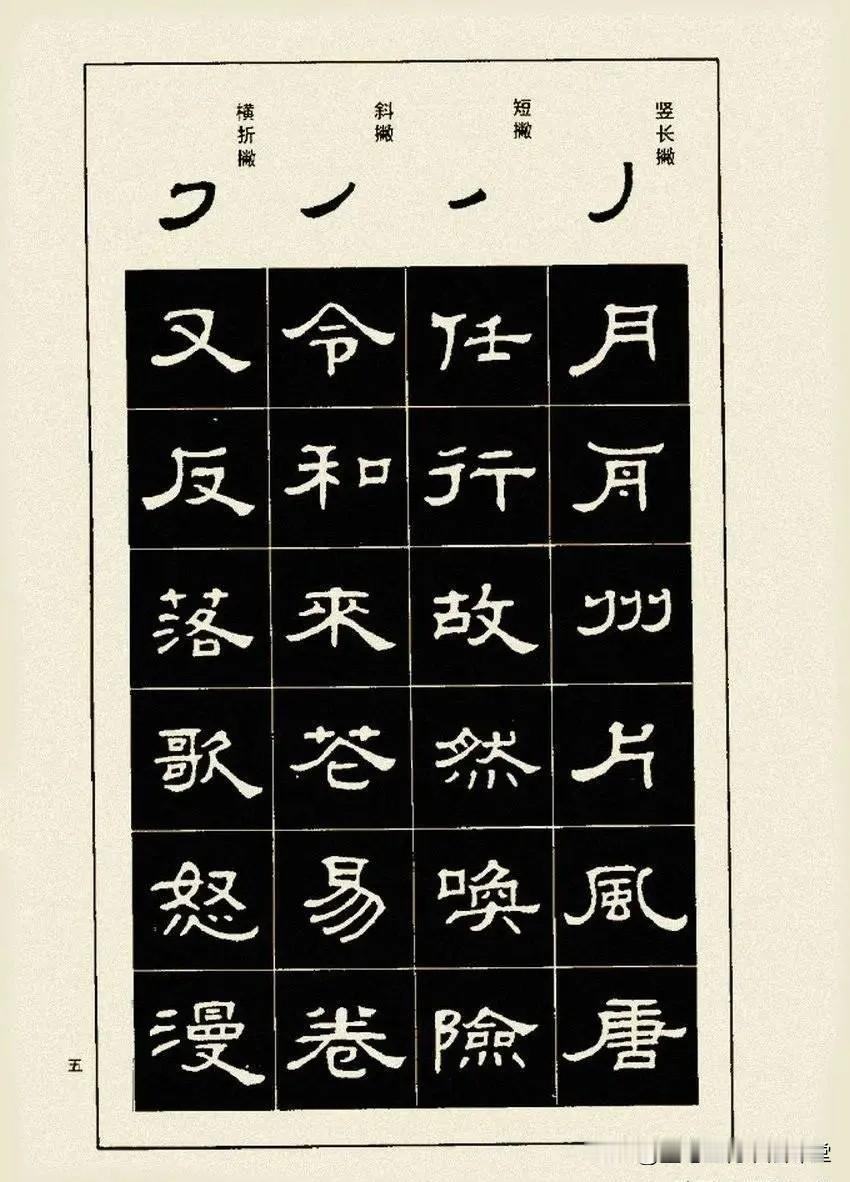 竖长撇
月
舟
州
片
風
唐
短撇
任
行
故
然
喚
險
斜撇
令
和
來
苍
易
卷
横折撇
又
反
落
歌
怒
漫
五